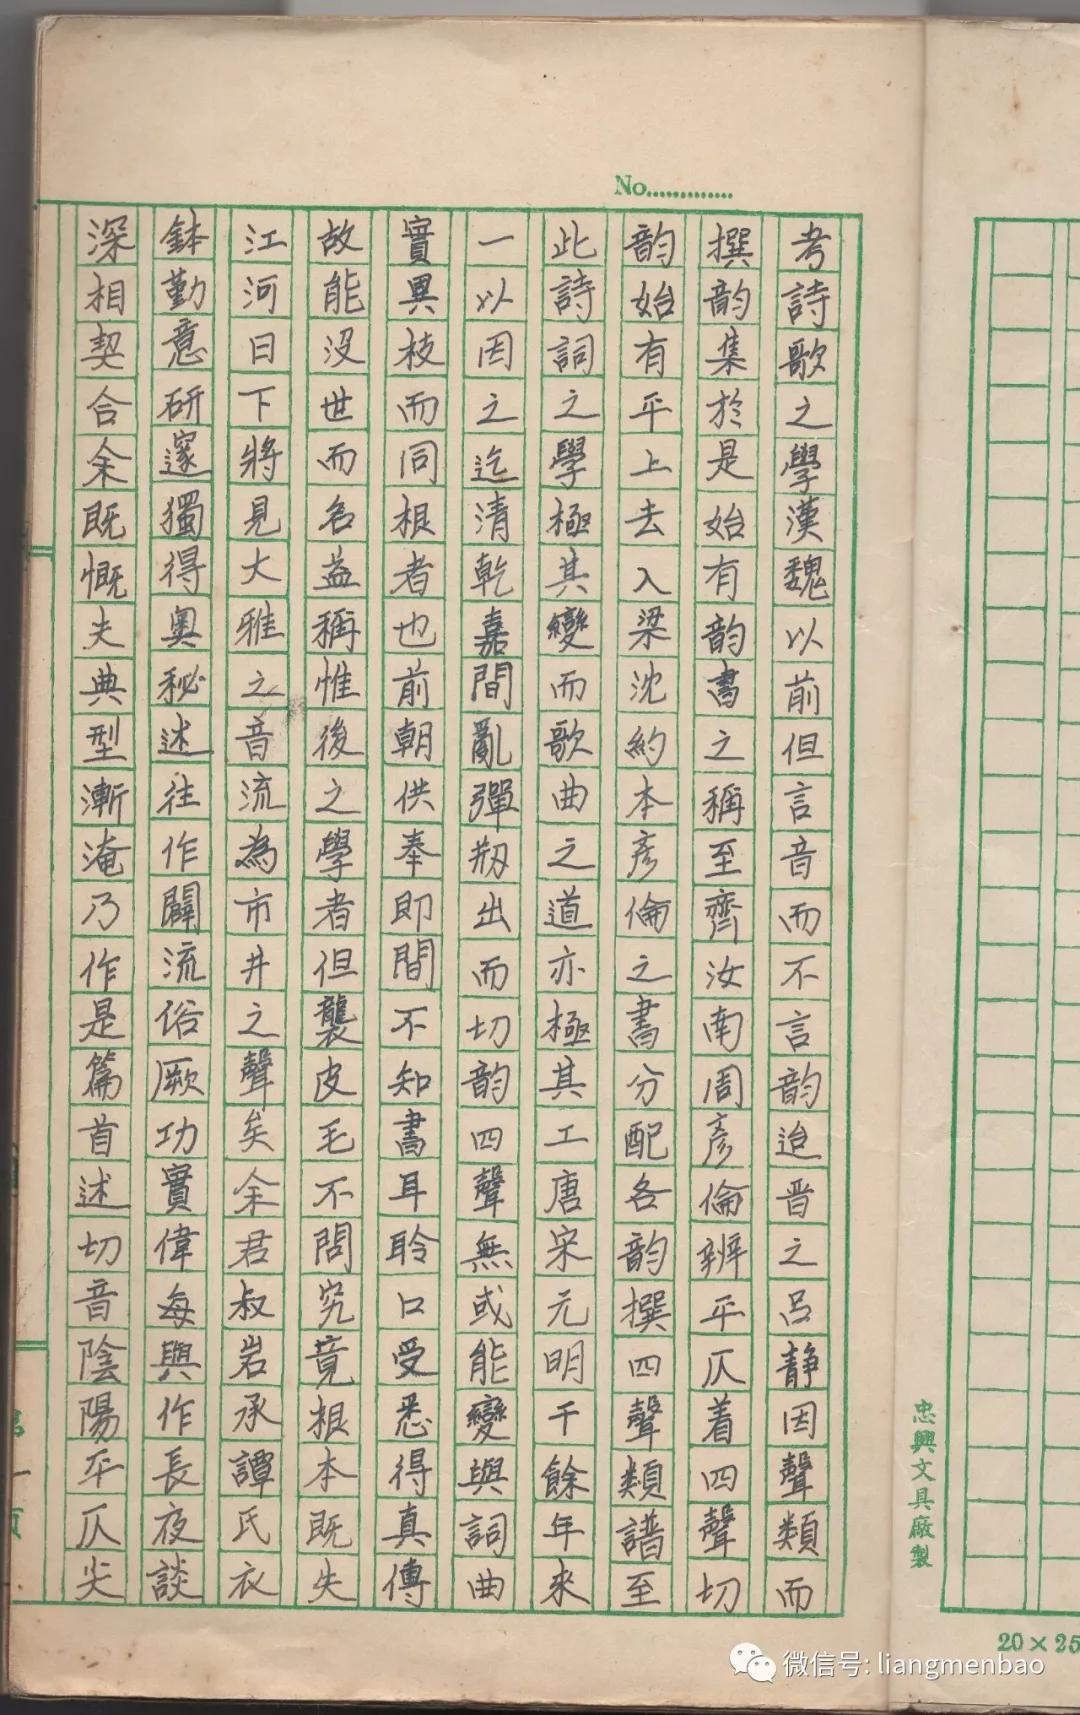 No.............
考詩歌之學漢魏以前但言音而不言韵迨晋之呂静因聲類而
撰韵集於是始有韵書之稱至齊汝南周彥倫辨平仄着四聲切
韵始有平上去入梁沈約本彥倫之書分配各韵撰四聲類譜至
此詩詞之學極其變而歌曲之道亦極其工唐宋元明千餘年來
一以因之迄清乾嘉間亂彈剏出而切韵四聲無或能變與詞曲
實異枝而同根者也前朝供奉即間不知書耳聆口受悉得真傳
故能没世而名益稱惟後之學者但襲皮毛不問究竟根本既失
江河日下將見大雅之音流為市井之聲矣余君叔岩承譚氏衣
鉢勤意研邃獨得奥秘述往作闢流俗厥功實偉每與作長夜談
深相契合余既慨夫典型漸淹乃作是篇首述切音陰陽平仄尖
忠興文具廠製
20×25
微信号: liangmenbao